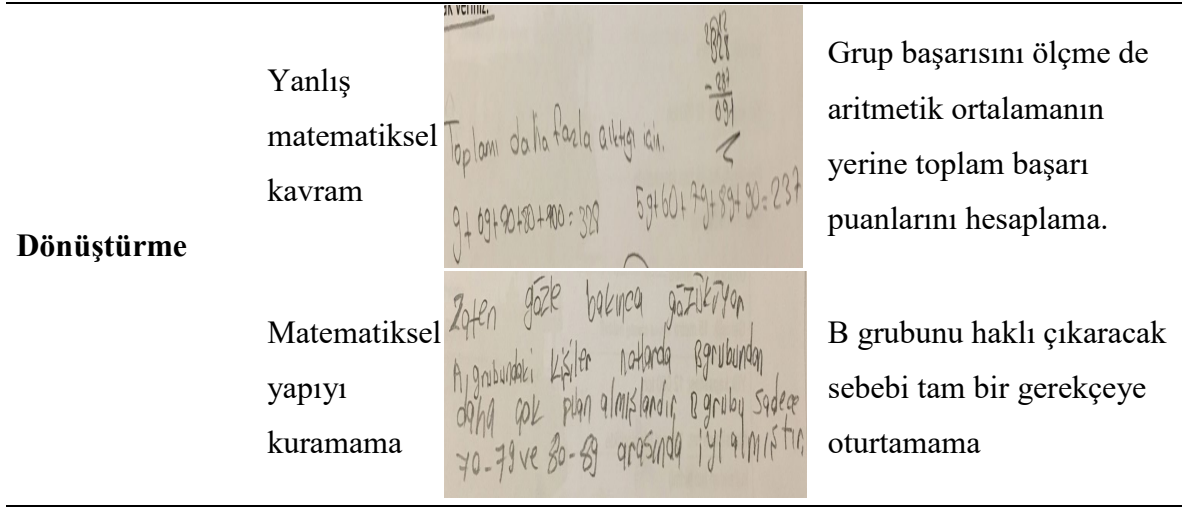 Dönüştürme
Yanlış
matematiksel
kavram
ak veriniz.
Toplamı daha fazla çıktığı için.
328
- 237
091
9+69+90+80+100=328
59+60+79+89+90=237
Grup başarısını ölçme de
aritmetik ortalamanın
yerine toplam başarı
puanlarını hesaplama.
Matematiksel
yapıyı
kuramama
Zaten gözle bakınca gözüküyor
A grubundaki kişiler notlarda B grubundan
daha çok puan almışlardır, B grubu sadece
70-79 ve 80-89 arasında iyi almıştır,
B grubunu haklı çıkaracak
sebebi tam bir gerekçeye
oturtamama